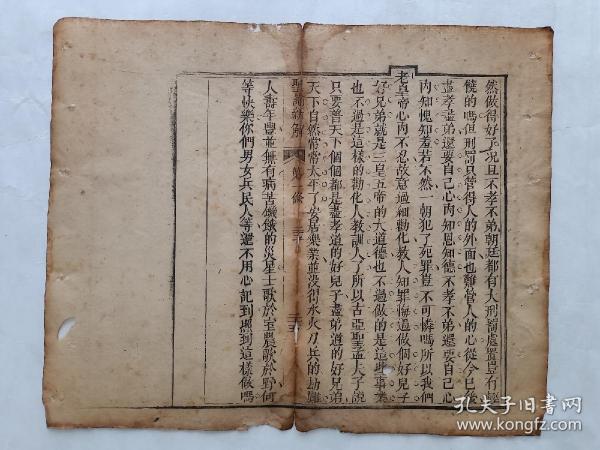 然做得好了况且不孝不弟朝廷都有大刑罰處置豈有輕
饒的嗎但刑罰只管得人的外面也難管人的心從今已後
盡孝盡弟還要自己心內知恩知德不孝不弟還要自己心
內知愧知羞若不然一朝犯了死罪豈不可憐嗎所以我們
老皇帝心內不忍故意過細勸化教人知罪悔過做個好兒子
好兄弟就是三皇五帝的大道德也不過做的是這些事業
也不過是這樣的勸化人教訓人了所以古亞聖孟夫子說
只要普天下個個都是盡孝道的好兒子盡弟道的好兄弟
天下自然常常太平了安居樂業並没得水火刀兵的劫難
聖諭 解
第一條
人壽年豐並無有病苦饑餓的災星士歌於室農歌於野何
等快樂你們男女兵民人等還不用心記到照到這樣做嗎
孔夫子旧书网
www.kongfz.com